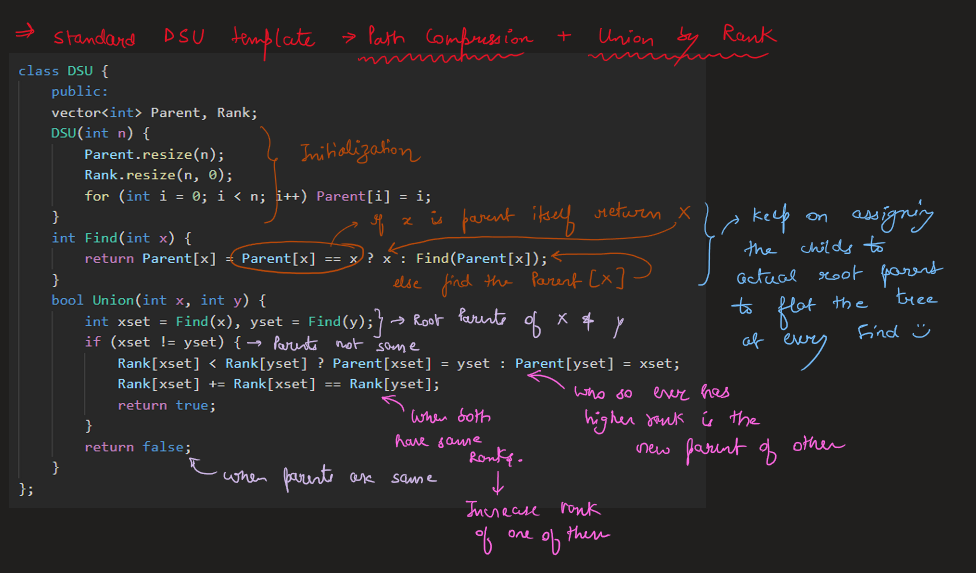 ⇒ Standard DSU template → Path Compression + Union by Rank
class DSU {
public:
vector<int> Parent, Rank;
DSU(int n) {
Parent.resize(n);
Rank.resize(n, 0);
for (int i = 0; i < n; i++) Parent[i] = i;
}
Initialization
int Find(int x) {
return Parent[x] = Parent[x] == x ? x : Find(Parent[x]);
}
→ If x is parent itself return X
else find the Parent [X]
→ keep on assigning
the childs to
actual root parent
to flat the tree
at every Find :)
bool Union(int x, int y) {
int xset = Find(x), yset = Find(y); → Root Parents of X & y
if (xset != yset) { → Parents not same
Rank[xset] < Rank[yset] ? Parent[xset] = yset : Parent[yset] = xset;
Rank[xset] += Rank[xset] == Rank[yset];
return true;
}
return false;
}
};
who so ever has
higher rank is the
new parent of other
when both
have same
Ranks.
↓
Increase rank
of one of them
when parents are same